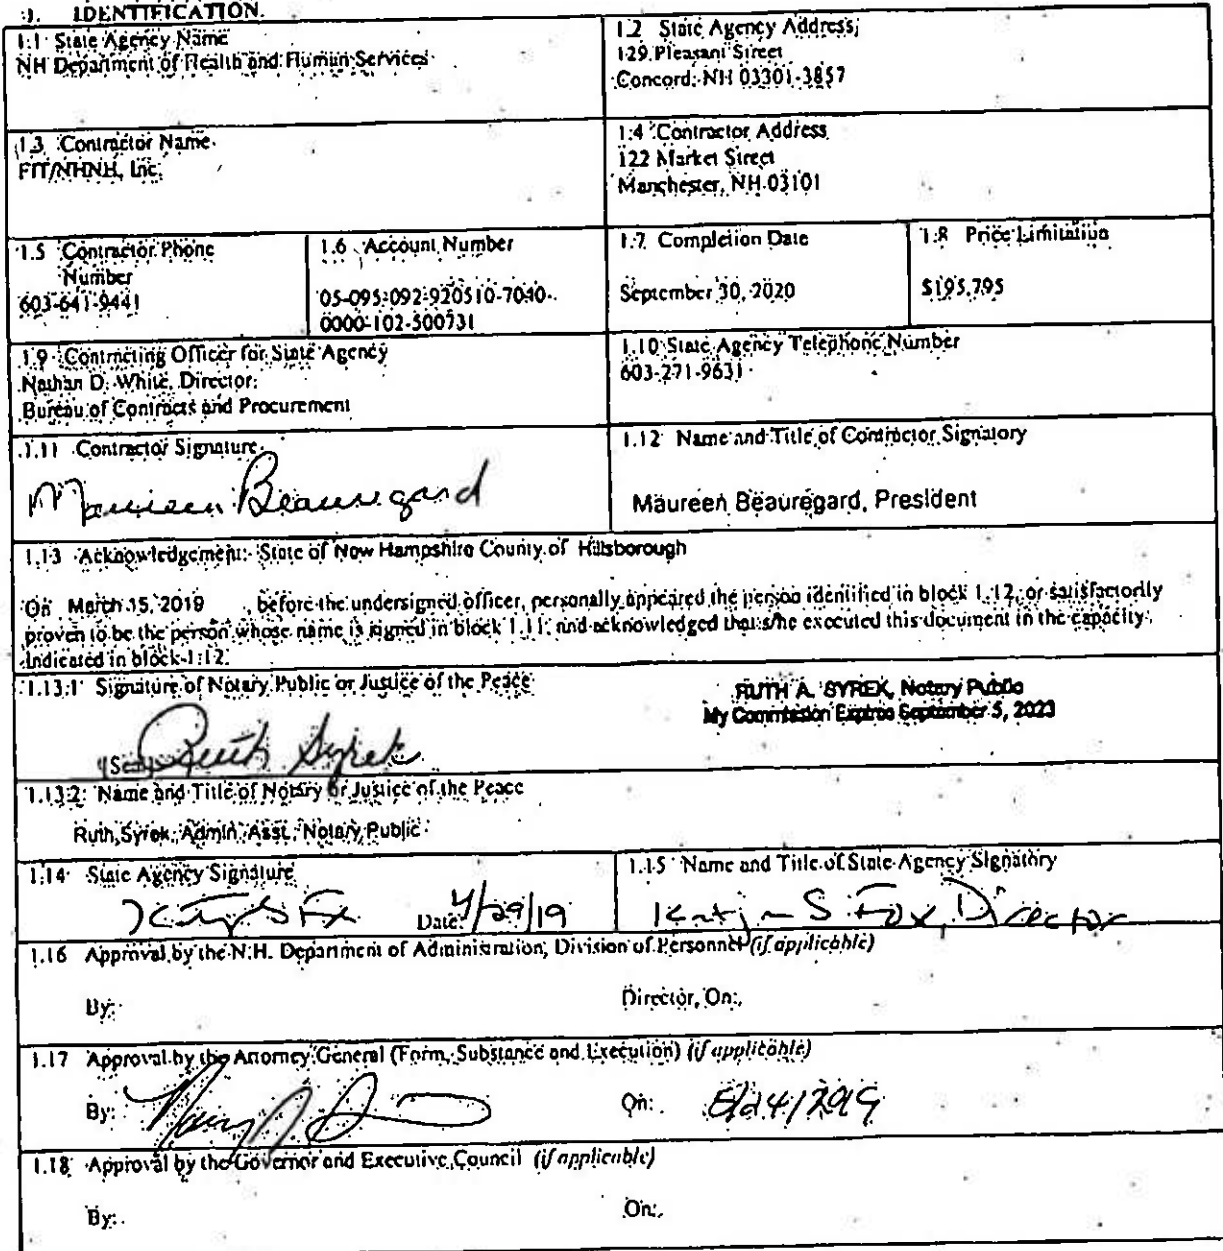 1. IDENTIFICATION.
1.1 State Agency Name
NH Department of Health and Human Services
1.2 State Agency Address
129 Pleasant Street
Concord, NH 03301-3857
1.3 Contractor Name
FIT/NHNH, Inc.
1.4 Contractor Address
122 Market Street
Manchester, NH 03101
1.5 Contractor Phone
Number
603-641-9441
1.6 Account Number
05-095-092-920510-7040-
0000-102-500731
1.7 Completion Date
September 30, 2020
1.8 Price Limitation
$195,795
1.9 Contracting Officer for State Agency
Nathan D. White, Director
Bureau of Contracts and Procurement
1.10 State Agency Telephone Number
603-271-9631
1.11 Contractor Signature
Maureen Beauregard
1.12 Name and Title of Contractor Signatory
Maureen Beauregard, President
1.13 Acknowledgement: State of New Hampshire County of Hillsborough
On March 15, 2019 , before the undersigned officer, personally appeared the person identified in block 1.12, or satisfactorily
proven to be the person whose name is signed in block 1.11, and acknowledged that s/he executed this document in the capacity
indicated in block 1.12.
1.13.1 Signature of Notary Public or Justice of the Peace
RUTH A. SYREK, Notary Public
My Commission Expires September 5, 2023
[Seal] Ruth Syrek
1.13.2 Name and Title of Notary or Justice of the Peace
Ruth Syrek, Admin. Asst., Notary Public
1.14 State Agency Signature
Date: 4/29/19
1.15 Name and Title of State Agency Signatory
S Fox, Director
1.16 Approval by the N.H. Department of Administration, Division of Personnel (if applicable)
By:
Director, On:
1.17 Approval by the Attorney General (Form, Substance and Execution) (if applicable)
By:
On:
1.18 Approval by the Governor and Executive Council (if applicable)
By:
On: